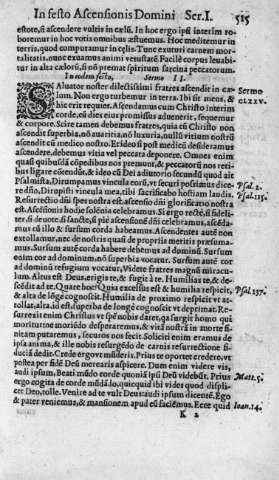 In festo Ascensionis Domini Ser. I. 515
estote, & ascendere vultis in cælũ. In hoc ergo ipsi interim ro
boremur in hoc votis omnibus æstuemus. Hoc meditemur in
terris, quod computamur in cęlis. Tunc exuturi carnem mor-
talitatis, nunc exuamus animi vetustatẽ. Facilè corpus leuabi-
tur in alta cælorũ, si nõ premat spiritum sarcina peccatorum.
In eodem festo, Sermo II.
Saluator noster dilectissimi fratres ascendit in cæ-
lum. Non ergo turbemur in terra. Ibi sit mens, &
hic erit requies. Ascendamus cum Christo interim
corde, cũ dies eius promissus aduenerit, sequemur
& corpore. Scire tamen debemus fratres, quia cũ Christo non
ascendit superbia, nõ auaritia, nõ luxuria, nullũ vitium nostrũ
ascendit cũ medico nostro. Et ideo si post medicũ desideramus
ascendere, debemus vitia vel peccata deponere. Omnes enim
quasi quibusdã cõpedibus nos premunt, & peccatorũ nos reti-
bus ligare cõtendũt, & ideo cũ Dei adiutorio secundũ quod ait
Psalmista, Dirumpamus vincula eorũ, vt securi possimus dice-
re dño, Dirupisti vincula mea, tibi sacrificabo hostiam laudis.
Resurrectio dñi spes nostra est, ascensio dñi glorificatio nostra
est. Ascensionis hodie solẽnia celebramus. Si ergo rectè, si fideli-
ter, si deuotè, si sanctè, si piè ascensionẽ dñi celebramus, ascẽda-
mus cũ illo & sursum corda habeamus. Ascendentes autẽ non
extollamur, nec de nostris quasi de propriis meritis præsuma-
mus. Sursum autẽ corda habere debemus ad dominũ. Sursum
enim cor ad dominum, nõ superbia vocatur. Sursum autẽ cor
ad dominũ refugium vocatur. Videte fratres magnũ miracu-
lum. Altus est Deus, erigis te, & fugit à te. Humilias te, & de-
scẽdit ad te. Quare hoc? Quia excelsus est & humilia respicit,
& alta de lõgè cognoscit. Humilia de proximo respicit vt at-
tollat, alta, id est superba de longè cognoscit vt deprimat. Re-
surrexit enim Christus vt spẽ nobis daret, qa surgit homo qui
moritur. ne moriẽdo desperaremus, & vitã nostrã in morte fi-
nitam putaremus, securos nos fecit. Soliciti enim eramus de
ipsa anima, & ille nobis resurgẽdo de carnis resurrectione fi-
duciã dedit. Crede ergo vt mũderis. Prius te oportet credere, vt
postea per fidẽ Deũ merearis aspicere. Deum enim vis videre,
audi ipsum, Beati mũdo corde quoniã ipsi Deũ videbũt. Prius
ergo cogita de corde mũdãdo, quicquid ibi vides quod displi-
cet Deo, tolle. Venire ad te vult Deus, audi ipsum dicentẽ, Ego
& pater veniemus, & mansionem apud eũ faciemus. Ecce quid
K 2
Sermo
CLXXV.
Psal. 2.
Psal. 115.
Psal. 137.
Matt. 5.
Ioan. 14.